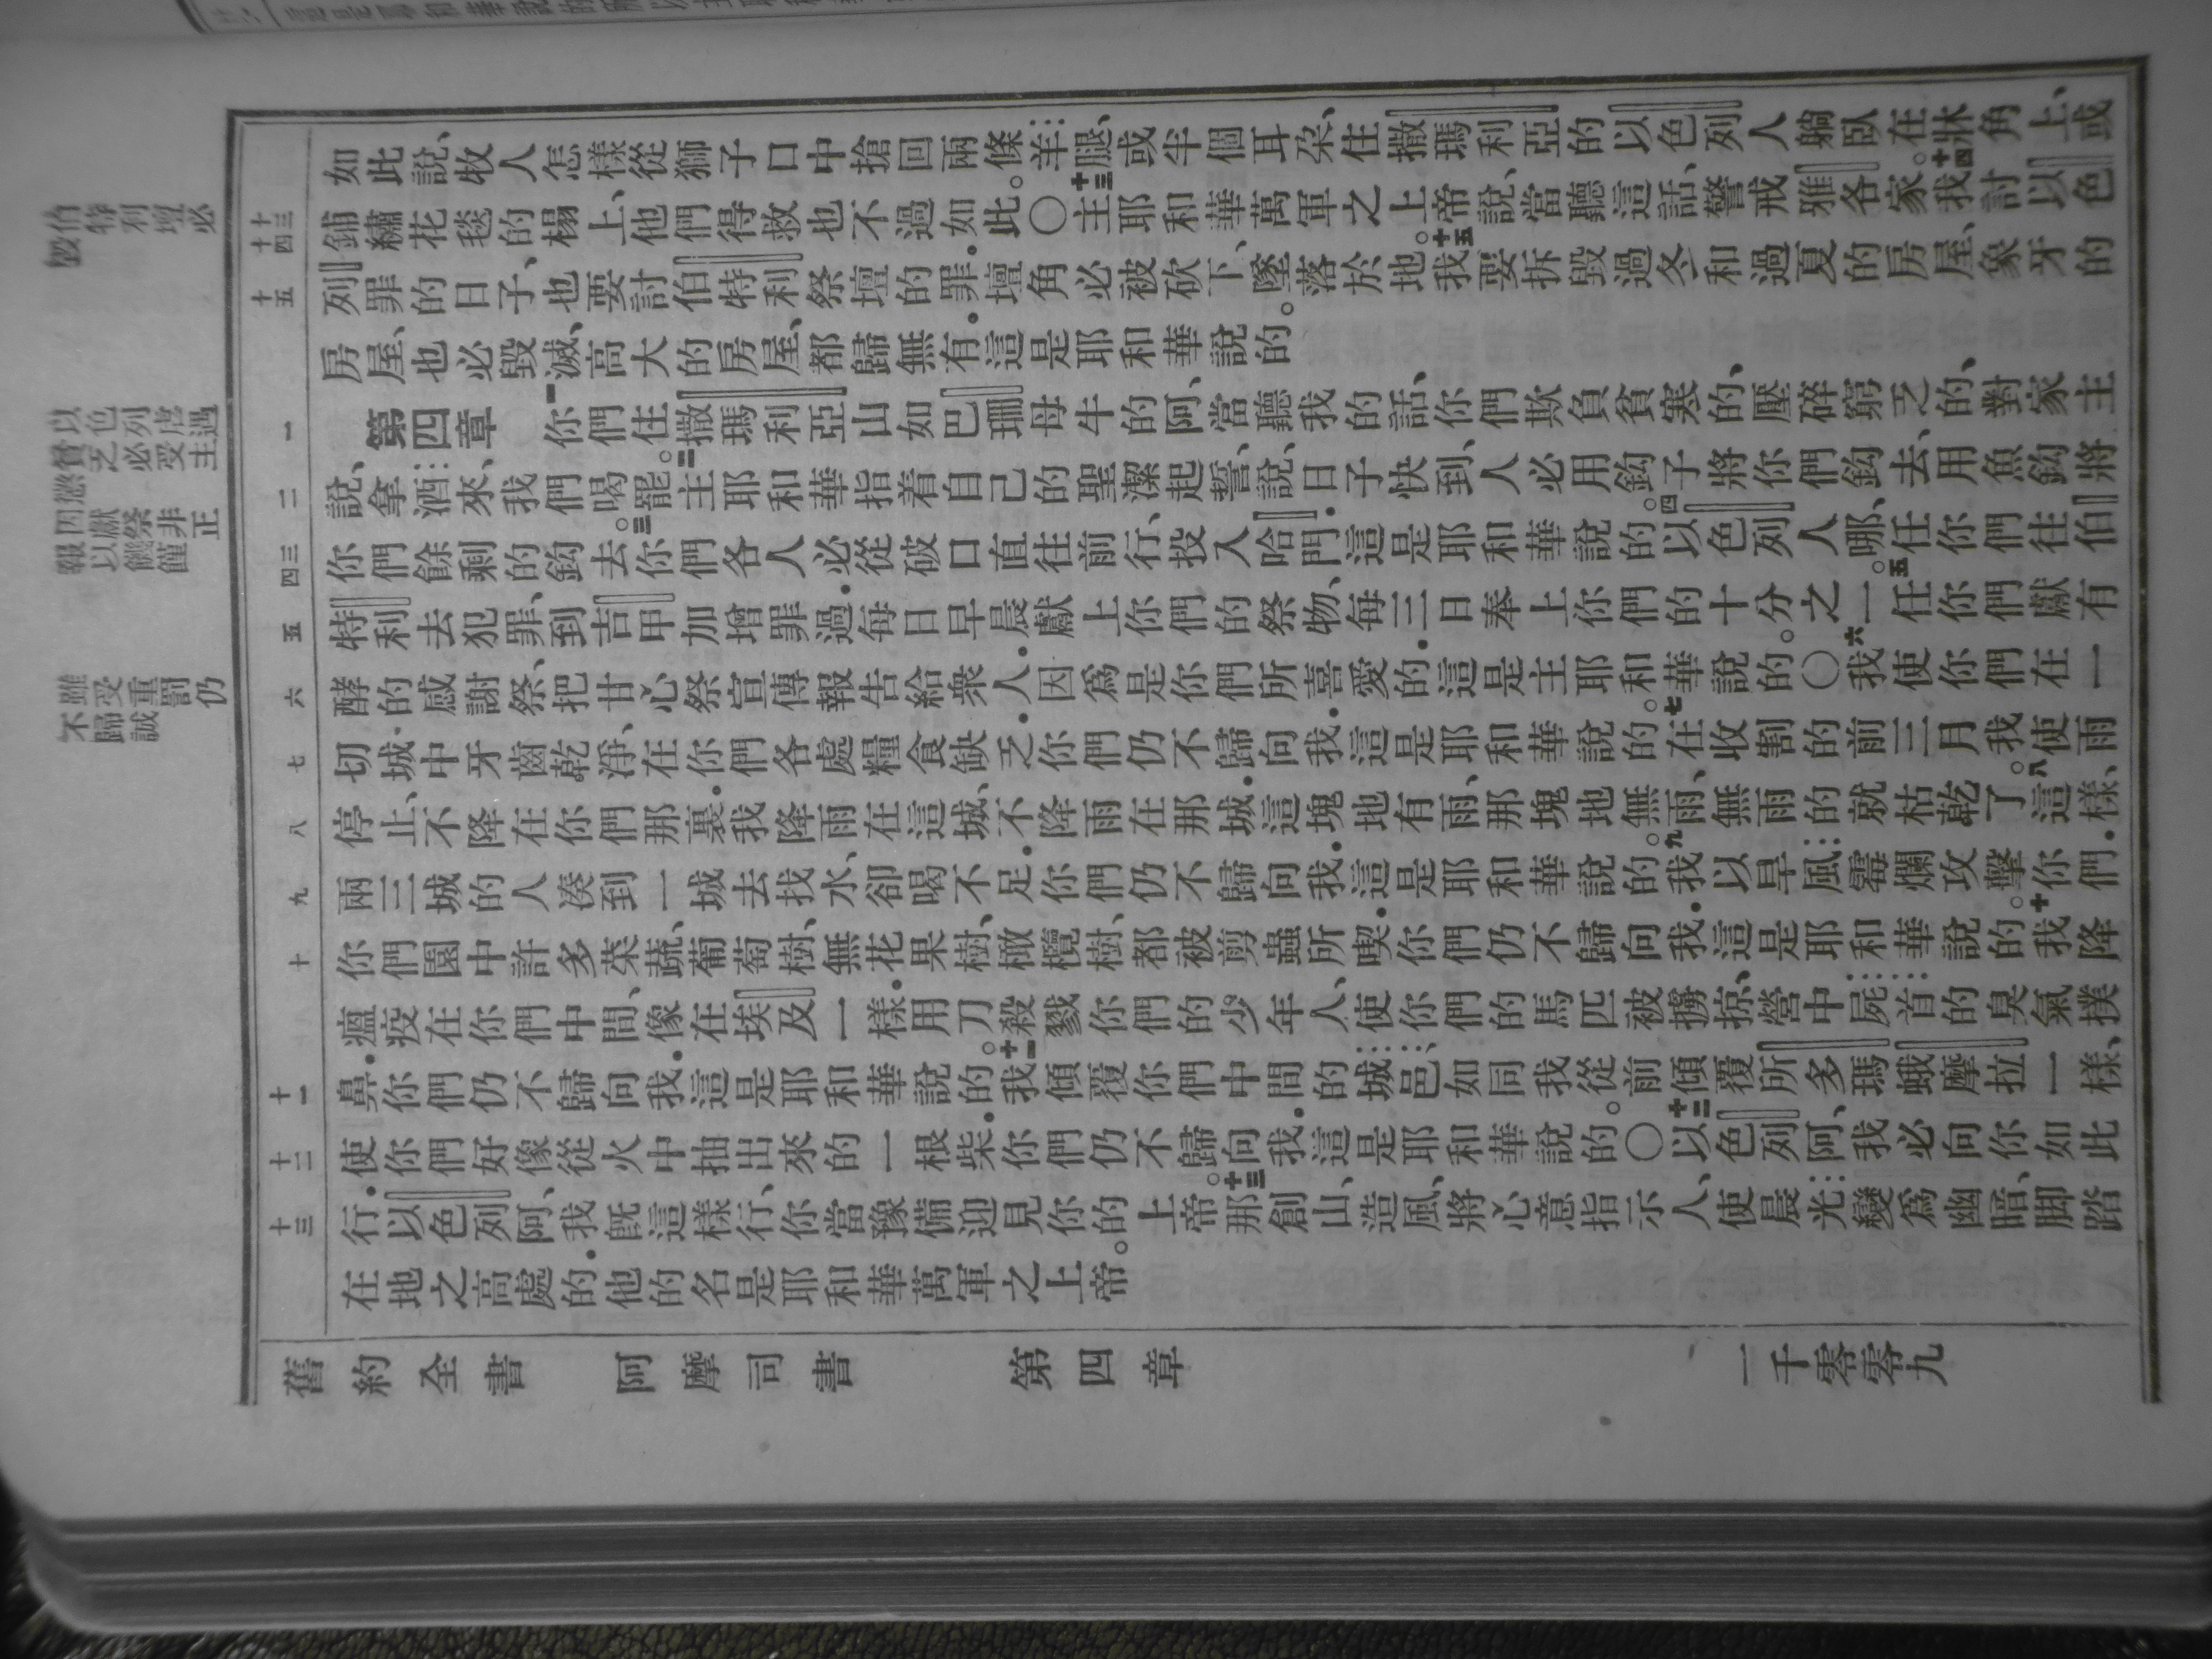 如此說、牧人怎樣從獅子口中搶回兩條羊腿、或半個耳朶、住撒瑪利亞的以色列人躺臥在牀角上、或
鋪繡花毯的榻上、他們得救也不過如此。〇十三主耶和華萬軍之上帝說、當聽這話、警戒雅各家。十四我討以色
列罪的日子、也要討伯特利祭壇的罪．壇角必被砍下、墜落於地。十五我要拆毀過冬和過夏的房屋、象牙的
房屋、也必毀滅、高大的房屋、都歸無有．這是耶和華說的。
第四章 一你們住撒瑪利亞山如巴珊母牛的阿、當聽我的話、你們欺負貧寒的、壓碎窮乏的、對家主
說、拿酒來、我們喝罷。二主耶和華指着自己的聖潔起誓、說、日子快到、人必用鈎子將你們鈎去、用魚鈎將
你們餘剩的鈎去。三你們各人必從破口直往前行、投入哈門．這是耶和華說的。四以色列人哪、任你們往伯
特利去犯罪、到吉甲加增罪過．每日早晨獻上你們的祭物、每三日奉上你們的十分之一。五任你們獻有
酵的感謝祭、把甘心祭宣傳報告給衆人．因爲是你們所喜愛的．這是主耶和華說的。〇六我使你們在一
切城中牙齒乾淨、在你們各處糧食缺乏．你們仍不歸向我．這是耶和華說的。七在收割的前三月、我使雨
停止、不降在你們那裏．我降雨在這城、不降雨在那城．這塊地有雨、那塊地無雨、無雨的就枯乾了。八這樣、
兩三城的人湊到一城去找水、卻喝不足．你們仍不歸向我．這是耶和華說的。九我以旱風霉爛攻擊你們．
你們園中許多菜蔬、葡萄樹、無花果樹、橄欖樹、都被剪蟲所喫．你們仍不歸向我．這是耶和華說的。十我降
瘟疫在你們中間、像在埃及一樣．用刀殺戮你們的少年人、使你們的馬匹被擄掠、營中屍首的臭氣撲
鼻．你們仍不歸向我．這是耶和華說的。十一我傾覆你們中間的城邑、如同我從前傾覆所多瑪蛾摩拉一樣、
使你們好像從火中抽出來的一根柴．你們仍不歸向我．這是耶和華說的。〇十二以色列阿、我必向你如此
行．以色列阿、我旣這樣行、你當豫備迎見你的上帝。十三那創山、造風、將心意指示人、使晨光變爲幽暗、脚踏
在地之高處的．他的名是耶和華萬軍之上帝。
舊約全書 阿摩司書 第四章 一千零零九
伯特利壇必毀
以色列虐遇貧乏必受主懲
因以獻祭非正報
雖受重罰仍不歸誠